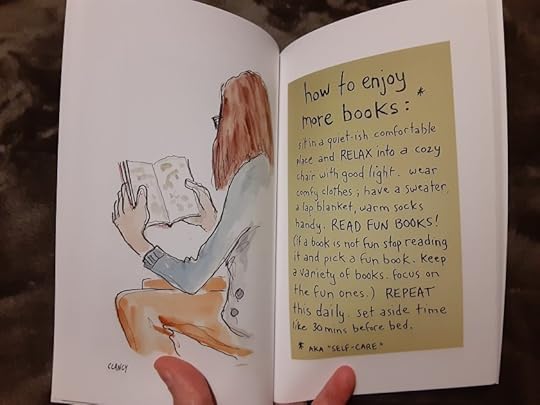 CLANCY
how to enjoy
more books: *
sit in a quiet-ish comfortable
place and RELAX into a cozy
chair with good light. wear
comfy clothes; have a sweater,
a lap blanket, warm socks
handy. READ FUN BOOKS!
(if a book is not fun stop reading
it and pick a fun book. Keep
a variety of books. focus on
the fun ones.) REPEAT
this daily. set aside time
like 30 mins before bed.
* AKA "SELF-CARE"